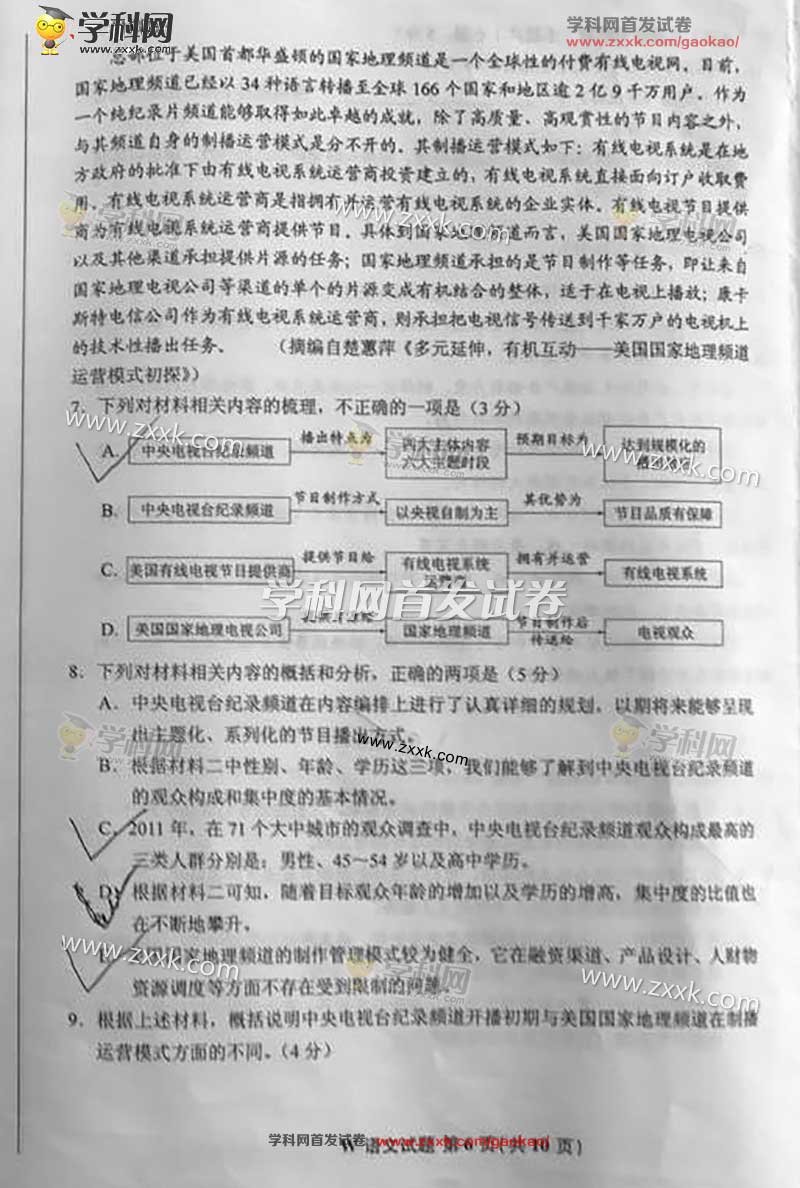 学科网
学科网首发试卷
www.zxxk.com/gaokao/
总部位于美国首都华盛顿的国家地理频道是一个全球性的付费有线电视网。目前，
国家地理频道已经以34种语言转播至全球166个国家和地区逾2亿9千万用户。作为
一个纯纪录片频道能够取得如此卓越的成就，除了高质量、高观赏性的节目内容之外，
与其频道自身的制播运营模式是分不开的。其制播运营模式如下：有线电视系统是在地
方政府的批准下由有线电视系统运营商投资建立的，有线电视系统直接面向订户收取费
用。有线电视系统运营商是指拥有并运营有线电视系统的企业实体。有线电视节目提供
商为有线电视系统运营商提供节目。具体到国家地理频道而言，美国国家地理电视公司
以及其他渠道承担提供片源的任务；国家地理频道承担的是节目制作等任务，即让来自
国家地理电视公司等渠道的单个的片源变成有机结合的整体，适于在电视上播放；康卡
斯特电信公司作为有线电视系统运营商，则承担把电视信号传送到千家万户的电视机上
的技术性播出任务。 （摘编自楚蕙萍《多元延伸，有机互动——美国国家地理频道
运营模式初探》）
7．下列对材料相关内容的梳理，不正确的一项是（3分）
A． 中央电视台纪录频道 播出特点为 四大主体内容 六大主题时段 预期目标为 达到规模化的
B． 中央电视台纪录频道 节目制作方式 以央视自制为主 其优势为 节目品质有保障
C． 美国有线电视节目提供商 提供节目给 有线电视系统 运营商 拥有并运营 有线电视系统
D． 美国国家地理电视公司 国家地理频道 节目制作后 传送给 电视观众
学科网首发试卷
8．下列对材料相关内容的概括和分析，正确的两项是（5分）
A．中央电视台纪录频道在内容编排上进行了认真详细的规划，以期将来能够呈现
出主题化、系列化的节目播出方式。
www.zxxk.com
B．根据材料二中性别、年龄、学历这三项，我们能够了解到中央电视台纪录频道
的观众构成和集中度的基本情况。
C．2011年，在71个大中城市的观众调查中，中央电视台纪录频道观众构成最高的
三类人群分别是：男性、45～54岁以及高中学历。
D．根据材料二可知，随着目标观众年龄的增加以及学历的增高，集中度的比值也
在不断地攀升。
美国国家地理频道的制作管理模式较为健全，它在融资渠道、产品设计、人财物
资源调度等方面不存在受到限制的问题。
9．根据上述材料，概括说明中央电视台纪录频道开播初期与美国国家地理频道在制播
运营模式方面的不同。（4分）
学科网首发试卷 www.zxxk.com/gaokao/
W·语文试题 第6页（共10页）